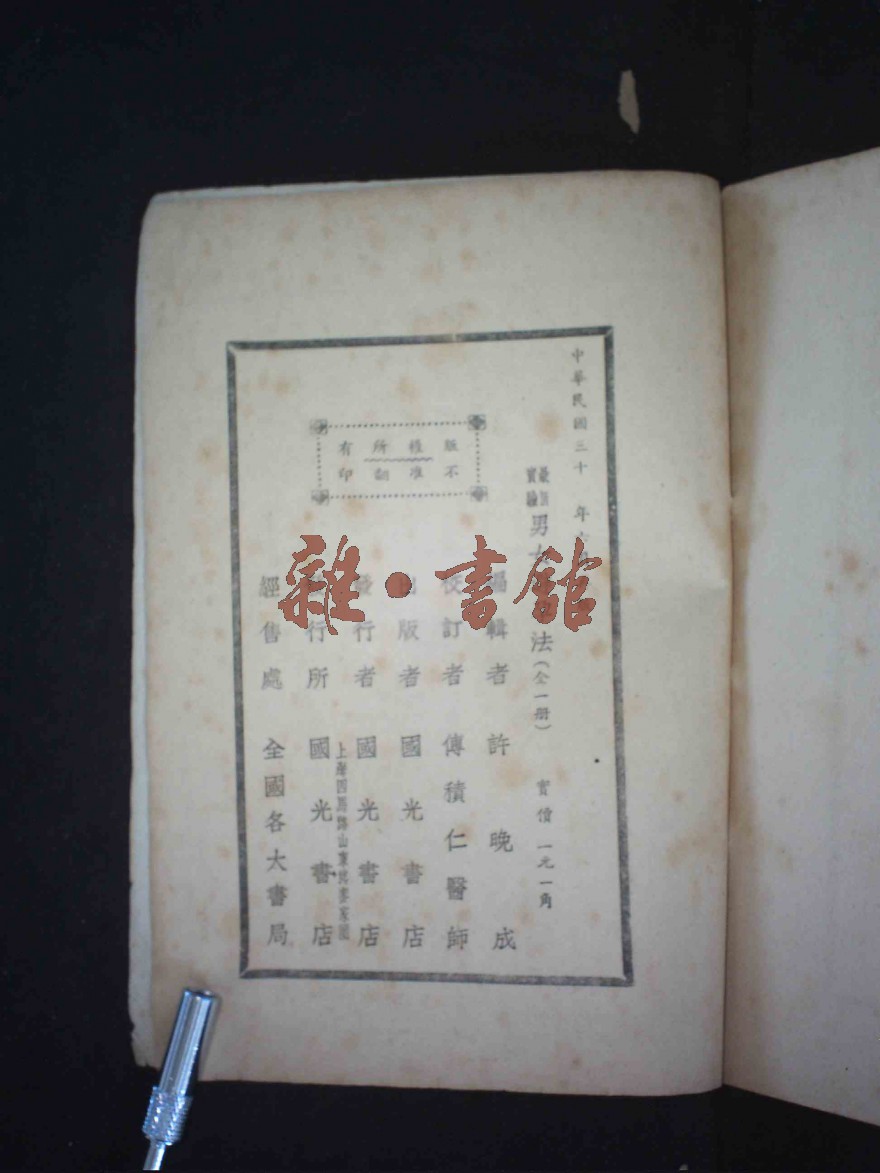 中華民國三十 年
實驗
男 法(全一册) 實價 一元一角
編輯者 許晚成
校訂者 傅積仁醫師
出版者 國光書店
發行者 國光書店
上海四馬路山東路
發行所 國光書店
經售處 全國各大書局
版權所有
不准翻印
雜·書館